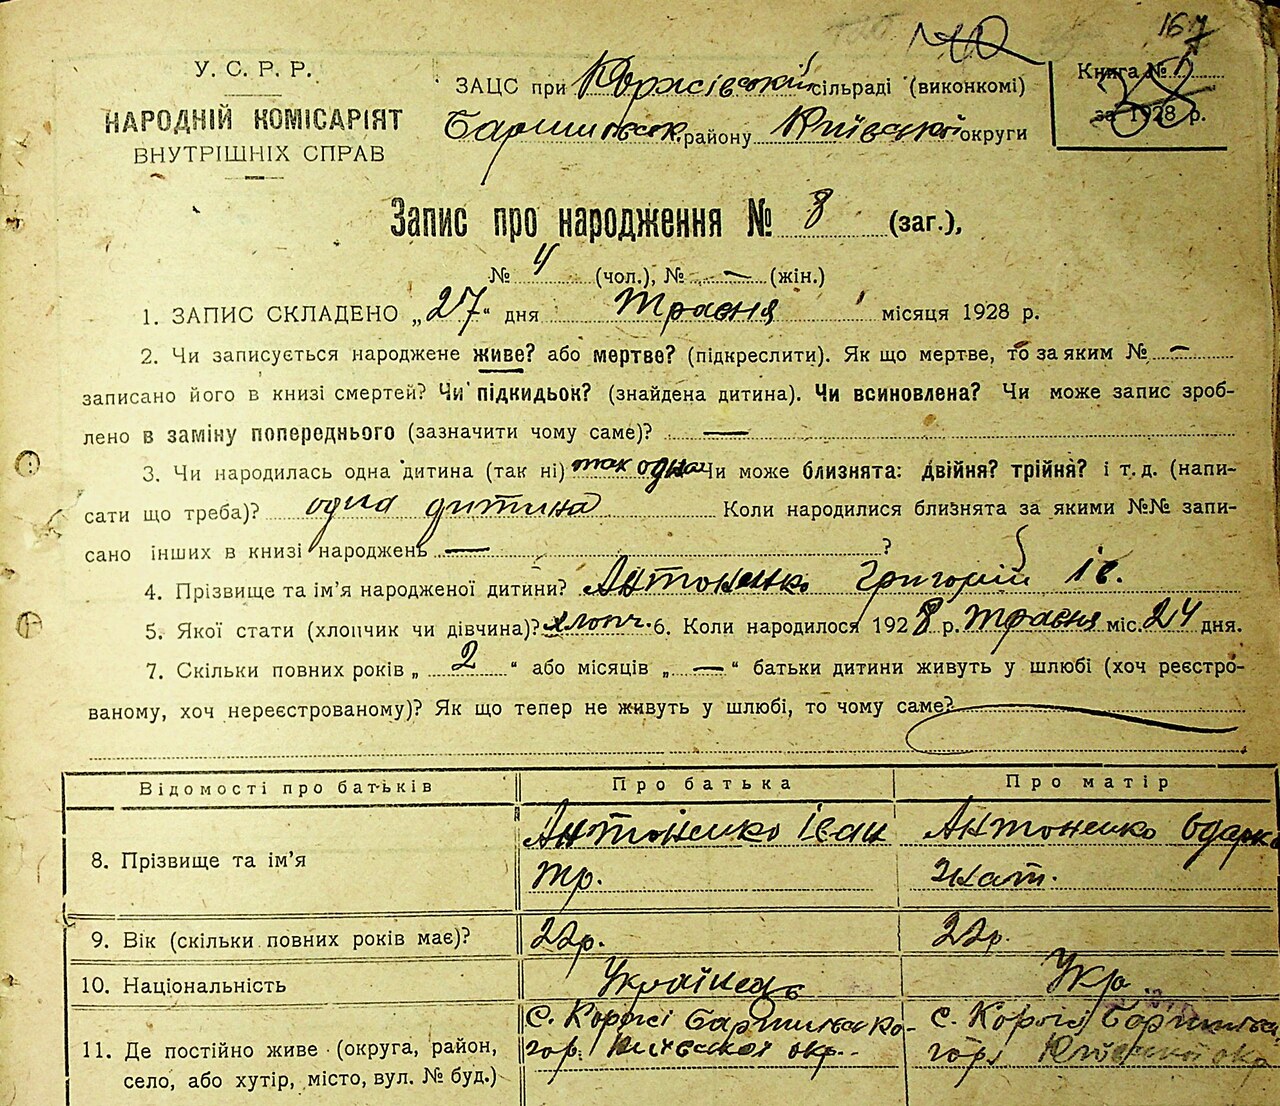 167
У. С. Р. Р.
НАРОДНІЙ КОМІСАРІЯТ
ВНУТРІШНІХ СПРАВ
ЗАЦС при Коржівській сільраді (виконкомі)
Баришівськ. району Київської округи
Книга № 1
за 1928 р.
38
Запис про народження № 8 (заг.),
№ 4 (чол.), № — (жін.)
1. ЗАПИС СКЛАДЕНО „27“ дня Травня місяця 1928 р.
2. Чи записується народжене живе? або мертве? (підкреслити). Як що мертве, то за яким № —
записано його в книзі смертей? Чи підкидьок? (знайдена дитина). Чи всиновлена? Чи може запис зроб-
лено в заміну попереднього (зазначити чому саме)? —
3. Чи народилась одна дитина (так ні) так одна Чи може близнята: двійня? трійня? і т. д. (напи-
сати що треба)? одна дитина Коли народилися близнята за якими №№ запи-
сано інших в книзі народжень — ?
4. Прізвище та ім’я народженої дитини? Антоненко Григорій Ів.
5. Якої стати (хлопчик чи дівчина)? хлопч. 6. Коли народилося 1928 р. Травня міс. 24 дня.
7. Скільки повних років „ 2 “ або місяців „ — “ батьки дитини живуть у шлюбі (хоч реєстро-
ваному, хоч нереєстрованому)? Як що тепер не живуть у шлюбі, то чому саме?
Відомості про батьків Про батька Про матір
8. Прізвище та ім’я Антоненко Іван Тр. Антоненко Одарка Гнат.
9. Вік (скільки повних років має)? 22р. 22р.
10. Національність Українець Укр.
11. Де постійно живе (округа, район,
село, або хутір, місто, вул. № буд.)
с. Коржі Баришівсько-
гор. Київської окр.
с. Коржі Баришівсь
гор. Київської окр